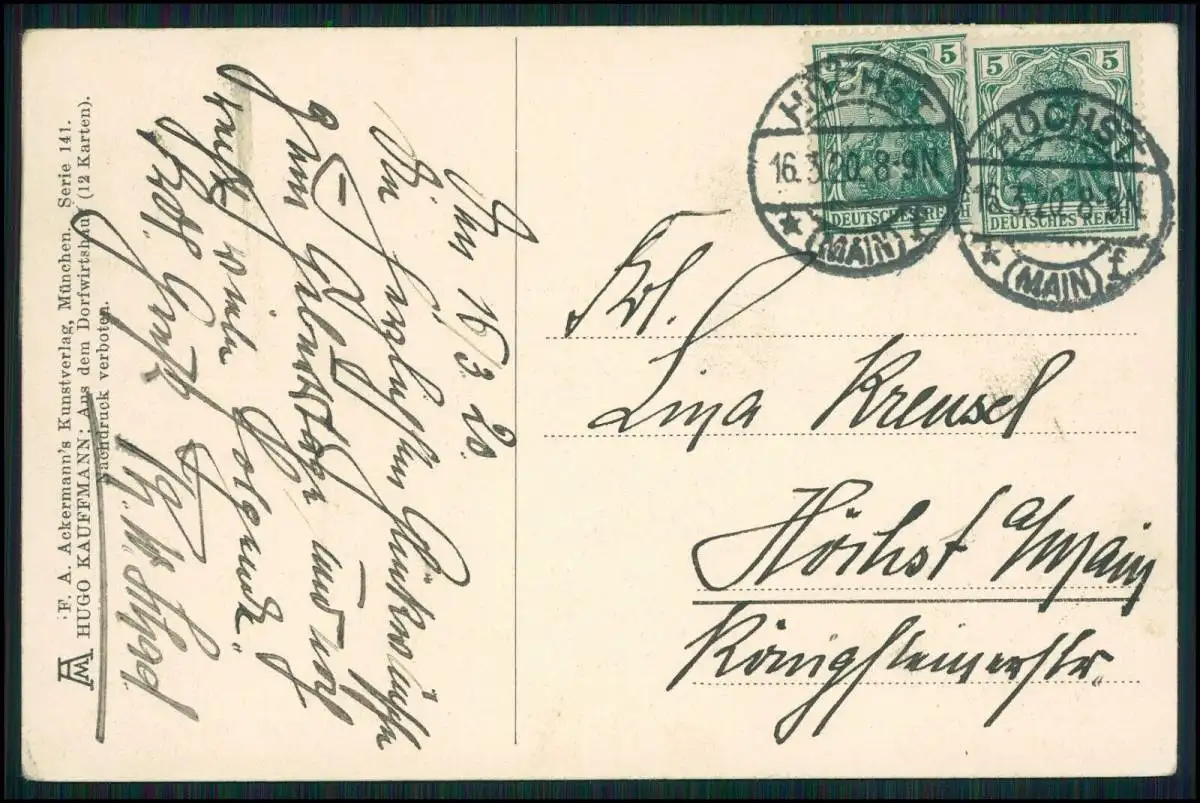 F. A. Ackermann's Kunstverlag, München. Serie 141.
HUGO KAUFFMANN: Aus dem Dorfwirtshaus (12 Karten).
Nachdruck verboten.
16/3. 20.
Die herzlichsten Glückwünsche
zum Geburtstage und noch
viele folgende
Gruß
5
DEUTSCHES REICH
5
DEUTSCHES REICH
HÖCHST
16.3.20. 8-9N
(MAIN) f
HÖCHST
16.3.20. 8-9N
(MAIN) f
Frl.
Lina Kreusel
Höchst a/Main
Königsteinerstr.